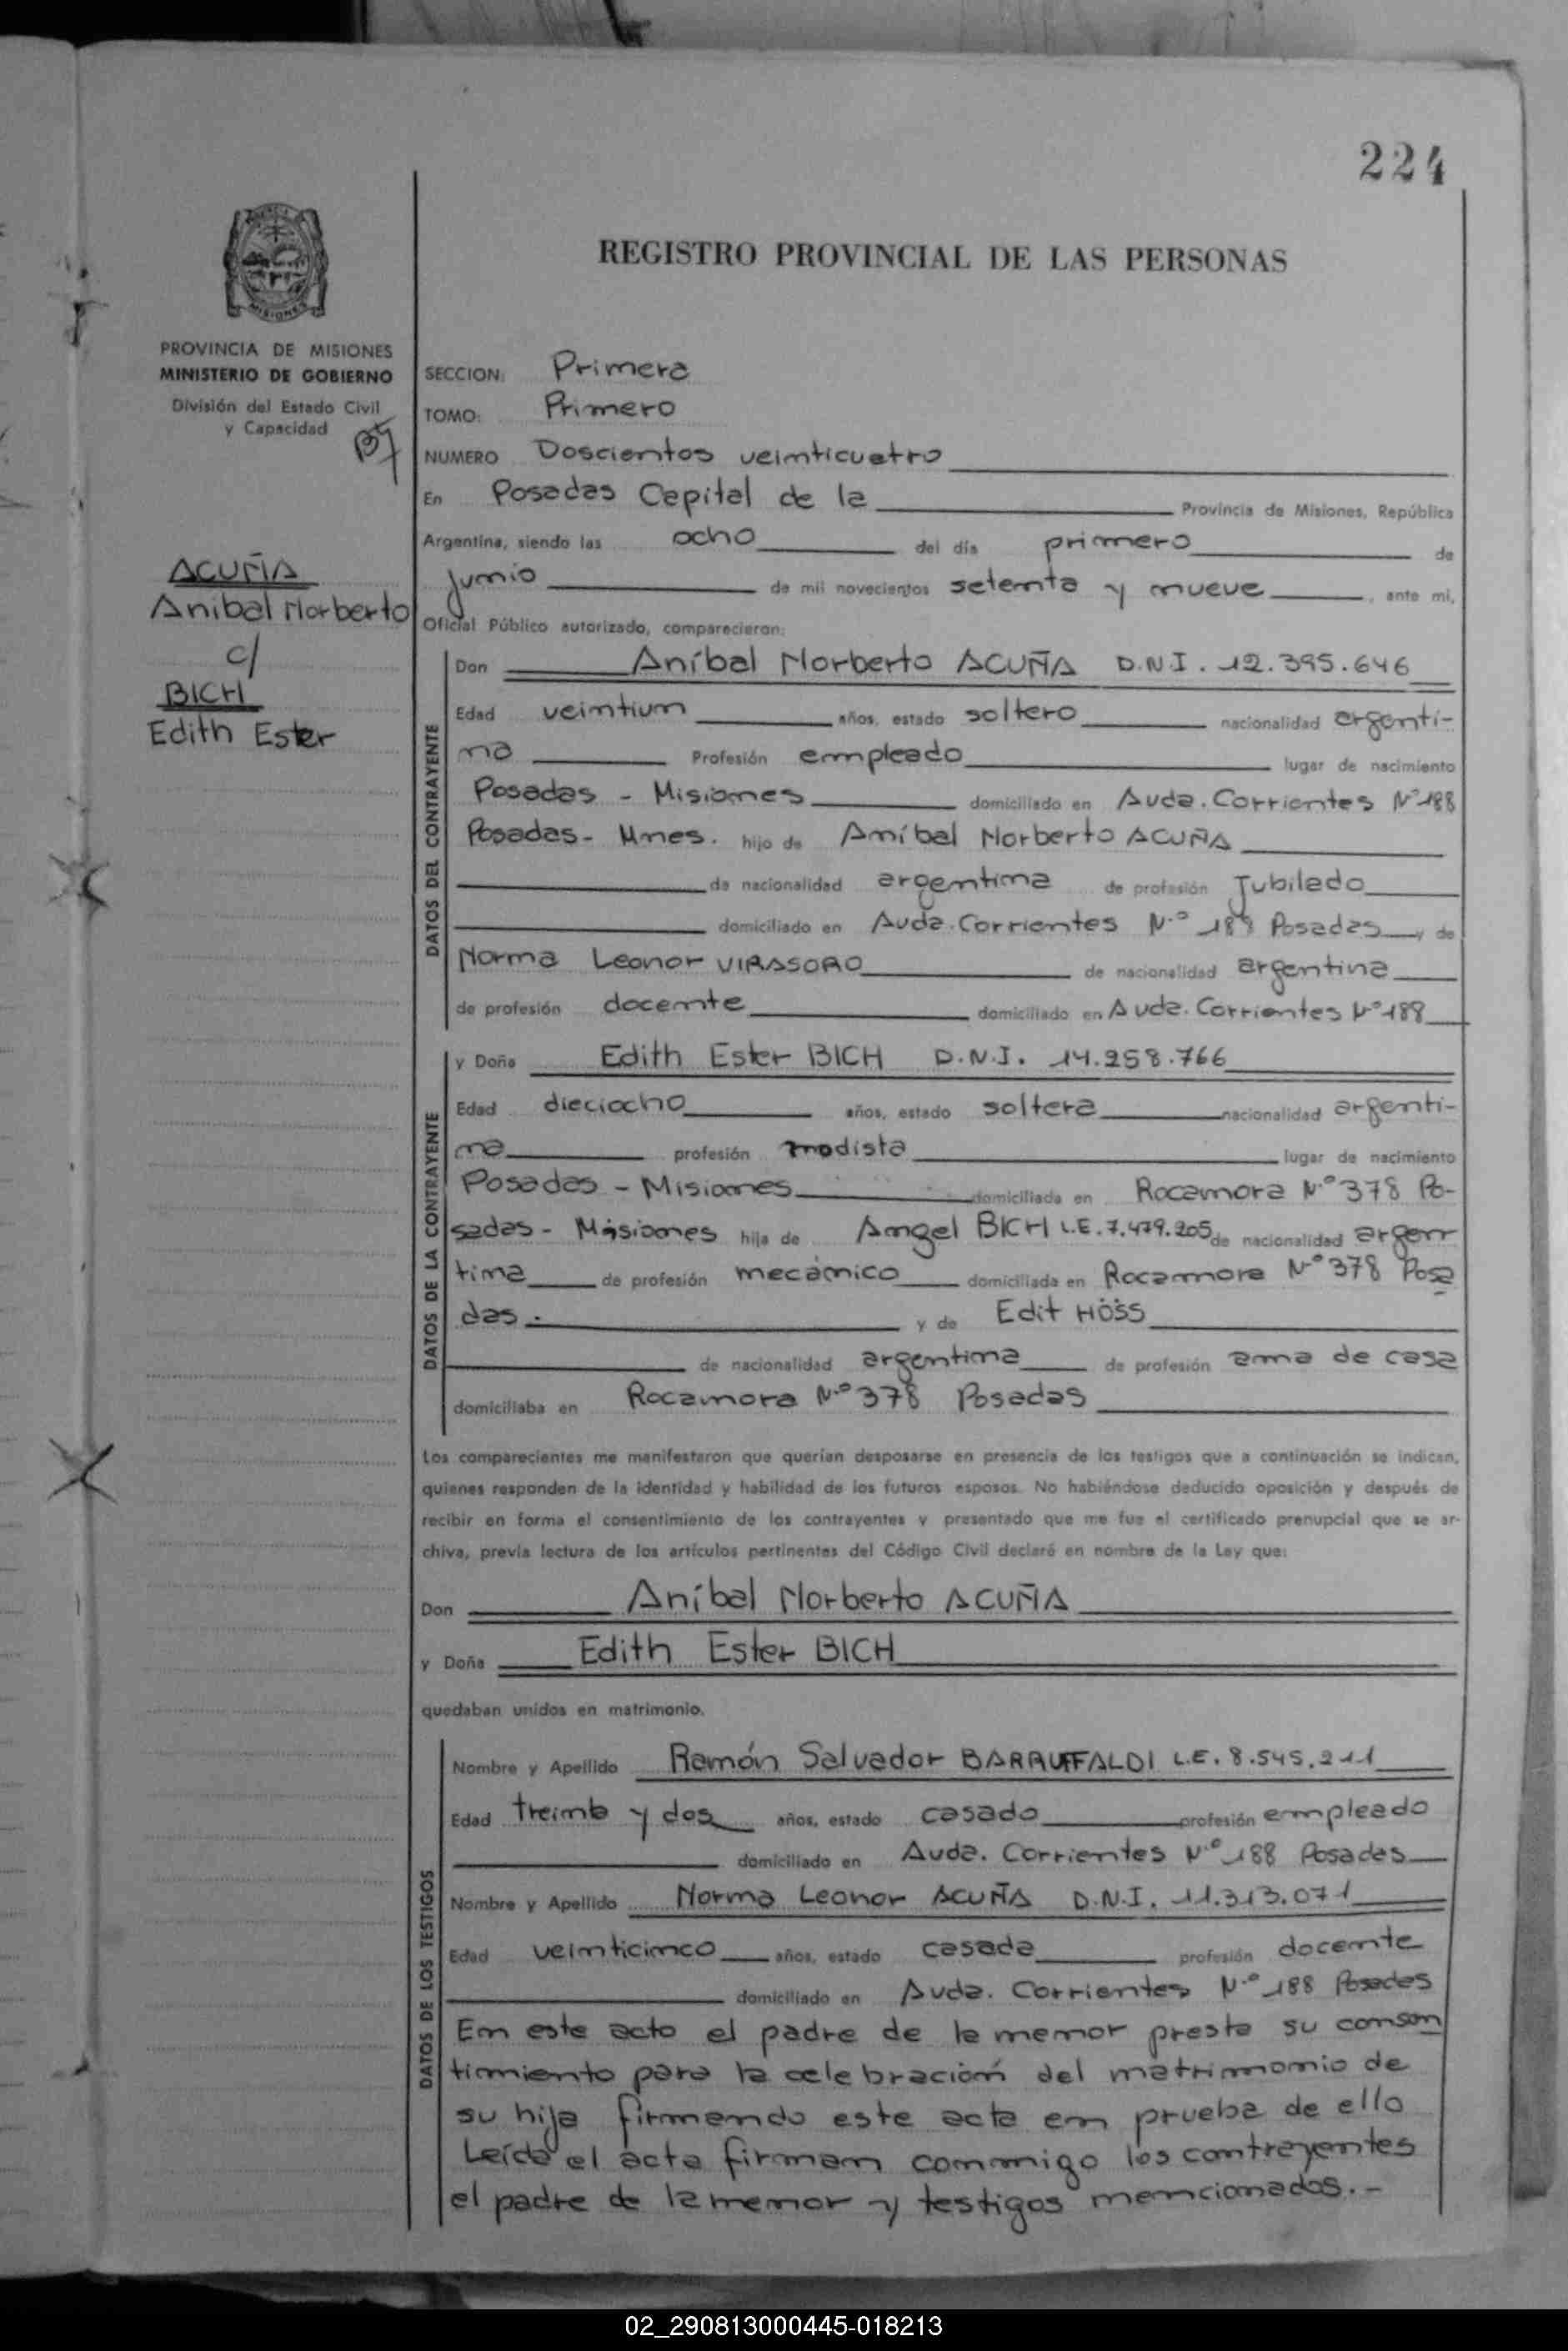 224
REGISTRO PROVINCIAL DE LAS PERSONAS
MISIONES
PROVINCIA DE MISIONES
MINISTERIO DE GOBIERNO
División del Estado Civil
y Capacidad
ACUÑA
Anibal Norberto
c/
BICH
Edith Ester
SECCION: Primera
TOMO: Primero
NUMERO Doscientos veinticuatro
En Posadas Capital de la Provincia de Misiones, República
Argentina, siendo las ocho del día primero de
junio de mil novecientos setenta y nueve, ante mi,
Oficial Público autorizado, comparecieron:
DATOS DEL CONTRAYENTE
Don Aníbal Norberto ACUÑA D.N.I. 12.395.646
Edad veintiun años, estado soltero nacionalidad argenti-
na Profesión empleado lugar de nacimiento
Posadas - Misiones domiciliado en Avda. Corrientes Nº188
Posadas- Mnes. hijo de Aníbal Norberto ACUÑA
de nacionalidad argentina de profesión Jubilado
domiciliado en Avda. Corrientes N.º 188 Posadas y de
Norma Leonor VIRASORO de nacionalidad argentina
de profesión docente domiciliado en Avda. Corrientes Nº188
DATOS DE LA CONTRAYENTE
y Doña Edith Ester BICH D.N.I. 14.258.766
Edad dieciocho años, estado soltera nacionalidad argenti-
na profesión modista lugar de nacimiento
Posadas - Misiones domiciliada en Rocamora N.º 378 Po-
sadas - Misiones hija de Angel BICH L.E. 7.479.205 de nacionalidad argen
tina de profesión mecánico domiciliada en Rocamora Nº 378 Posa
das. y de Edit HÖSS
de nacionalidad argentina de profesión ama de casa
domiciliaba en Rocamora N.º 378 Posadas
Los comparecientes me manifestaron que querían desposarse en presencia de los testigos que a continuación se indican,
quienes responden de la identidad y habilidad de los futuros esposos. No habiéndose deducido oposición y después de
recibir en forma el consentimiento de los contrayentes y presentado que me fue el certificado prenupcial que se ar-
chiva, previa lectura de los artículos pertinentes del Código Civil declaré en nombre de la Ley que:
Don Aníbal Norberto ACUÑA
y Doña Edith Ester BICH
quedaban unidos en matrimonio.
DATOS DE LOS TESTIGOS
Nombre y Apellido Ramón Salvador BARRUFFALDI L.E. 8.545.211
Edad treinta y dos años, estado casado profesión empleado
domiciliado en Avda. Corrientes N.º 188 Posadas
Nombre y Apellido Norma Leonor ACUÑA D.N.I. 11.313.071
Edad veinticinco años, estado casada profesión docente
domiciliado en Avda. Corrientes N.º 188 Posadas
En este acto el padre de la menor presta su consen
timiento para la celebración del matrimonio de
su hija firmando este acta en prueba de ello
Leída el acta firman conmigo los contrayentes
el padre de la menor y testigos mencionados.-
02_290813000445-018213